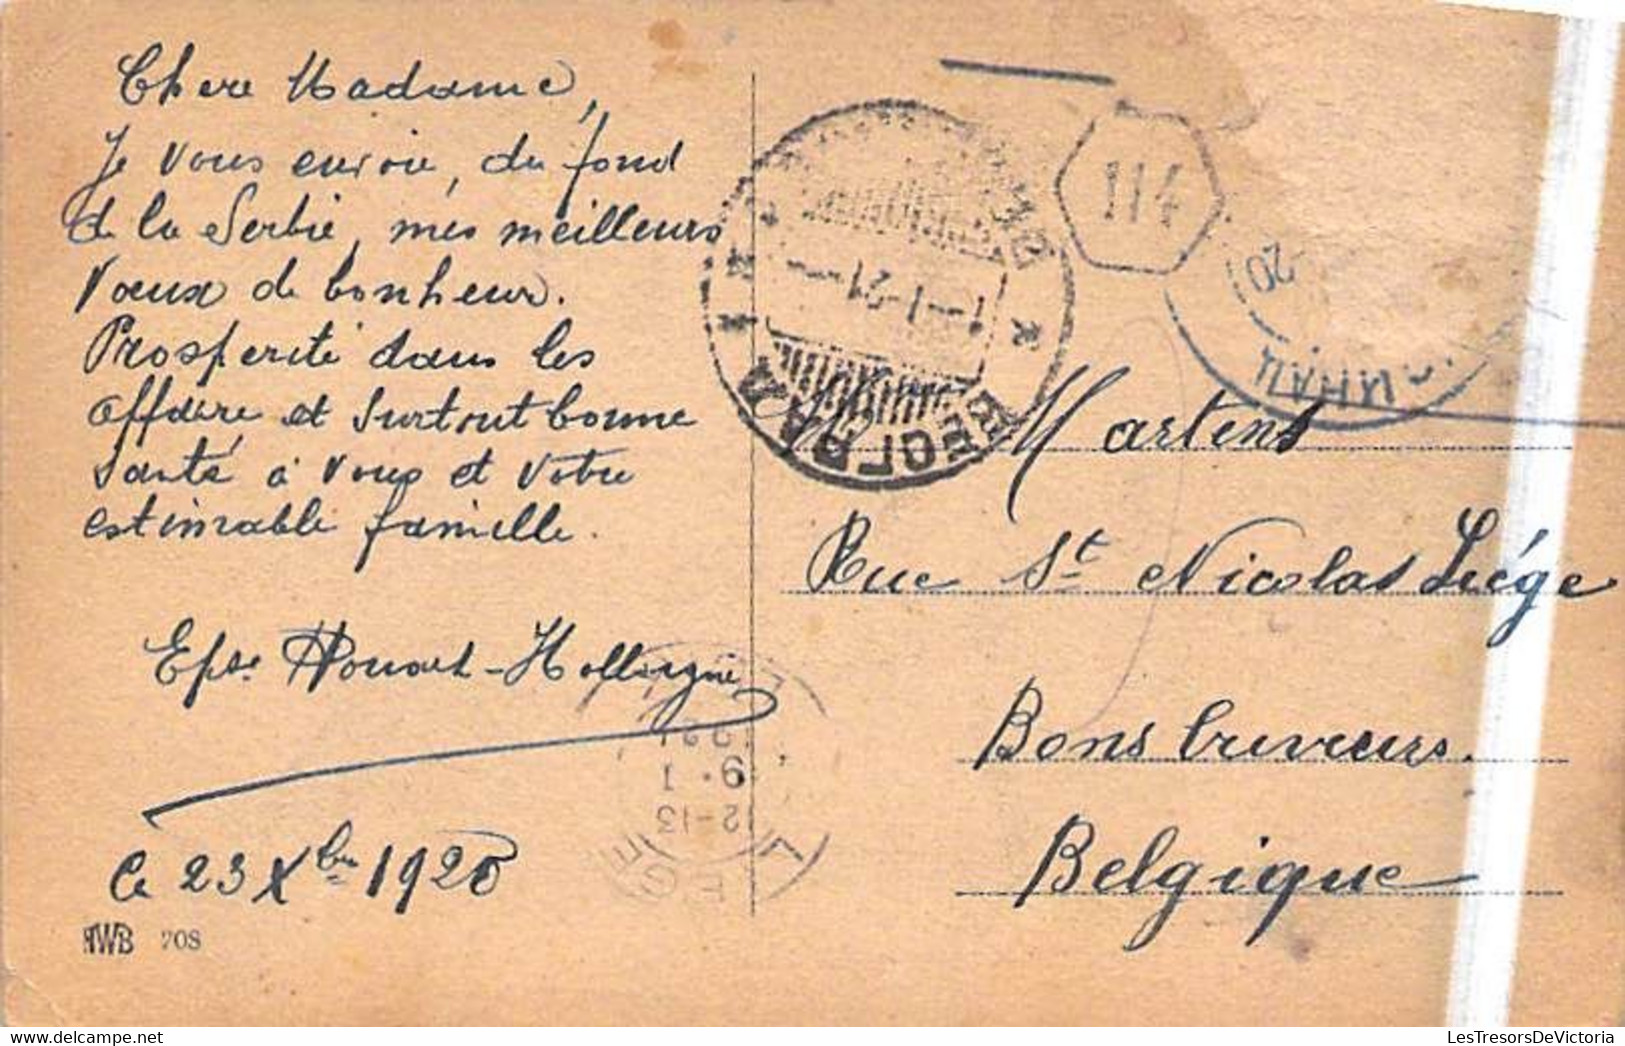 Chere Madame,
Je vous envoie, du fond
de la Serbie, mes meilleurs
Vœux de bonheur.
Prosperité dans les
affaire et surtout bonne
Santé à vous et votre
estimable famille.
Eps. Houart-Hollogne
Le 23 Xbre 1920
NWB 708
114
20
1-1-21
BEOGRAD
БЕОГРАД
Martens
Rue St Nicolas Liége
Bons buveurs.
Belgique
LIEGE
12-13
9.1
LesTresorsDeVictoria.com